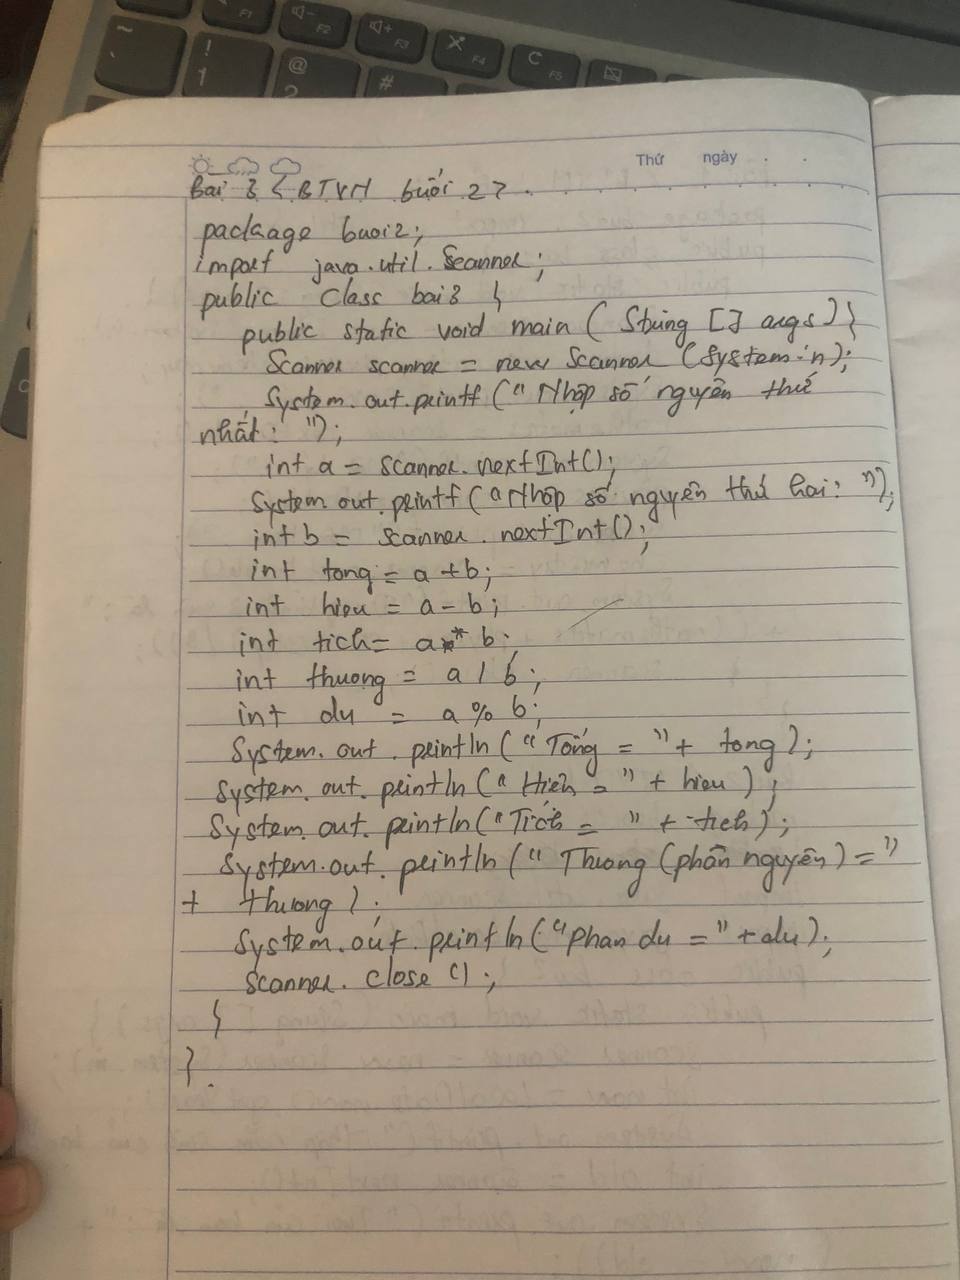 F1
F2
F3
F4
F5
~
!
1
@
2
#
Thứ ngày
Bai 3 < BTVH buổi 2>
package buoi2;
import java.util.Scanner;
public class bai3 {
public static void main (String [] args) {
Scanner scanner = new Scanner (System.in);
System.out.printf (" Nhập số nguyên thứ
nhất: ");
int a = scanner.nextInt();
System.out.printf (" Nhập số nguyên thứ hai: ");
int b = scanner.nextInt();
int tong = a + b;
int hieu = a - b;
int tich = a * b;
int thuong = a / b;
int du = a % b;
System.out.println (" Tổng = " + tong);
System.out.println (" Hiệu = " + hieu);
System.out.println (" Tích = " + tich);
System.out.println (" Thuong (phần nguyên) = "
+ thuong);
System.out.println ("phan du = " + du);
scanner.close();
}
}.